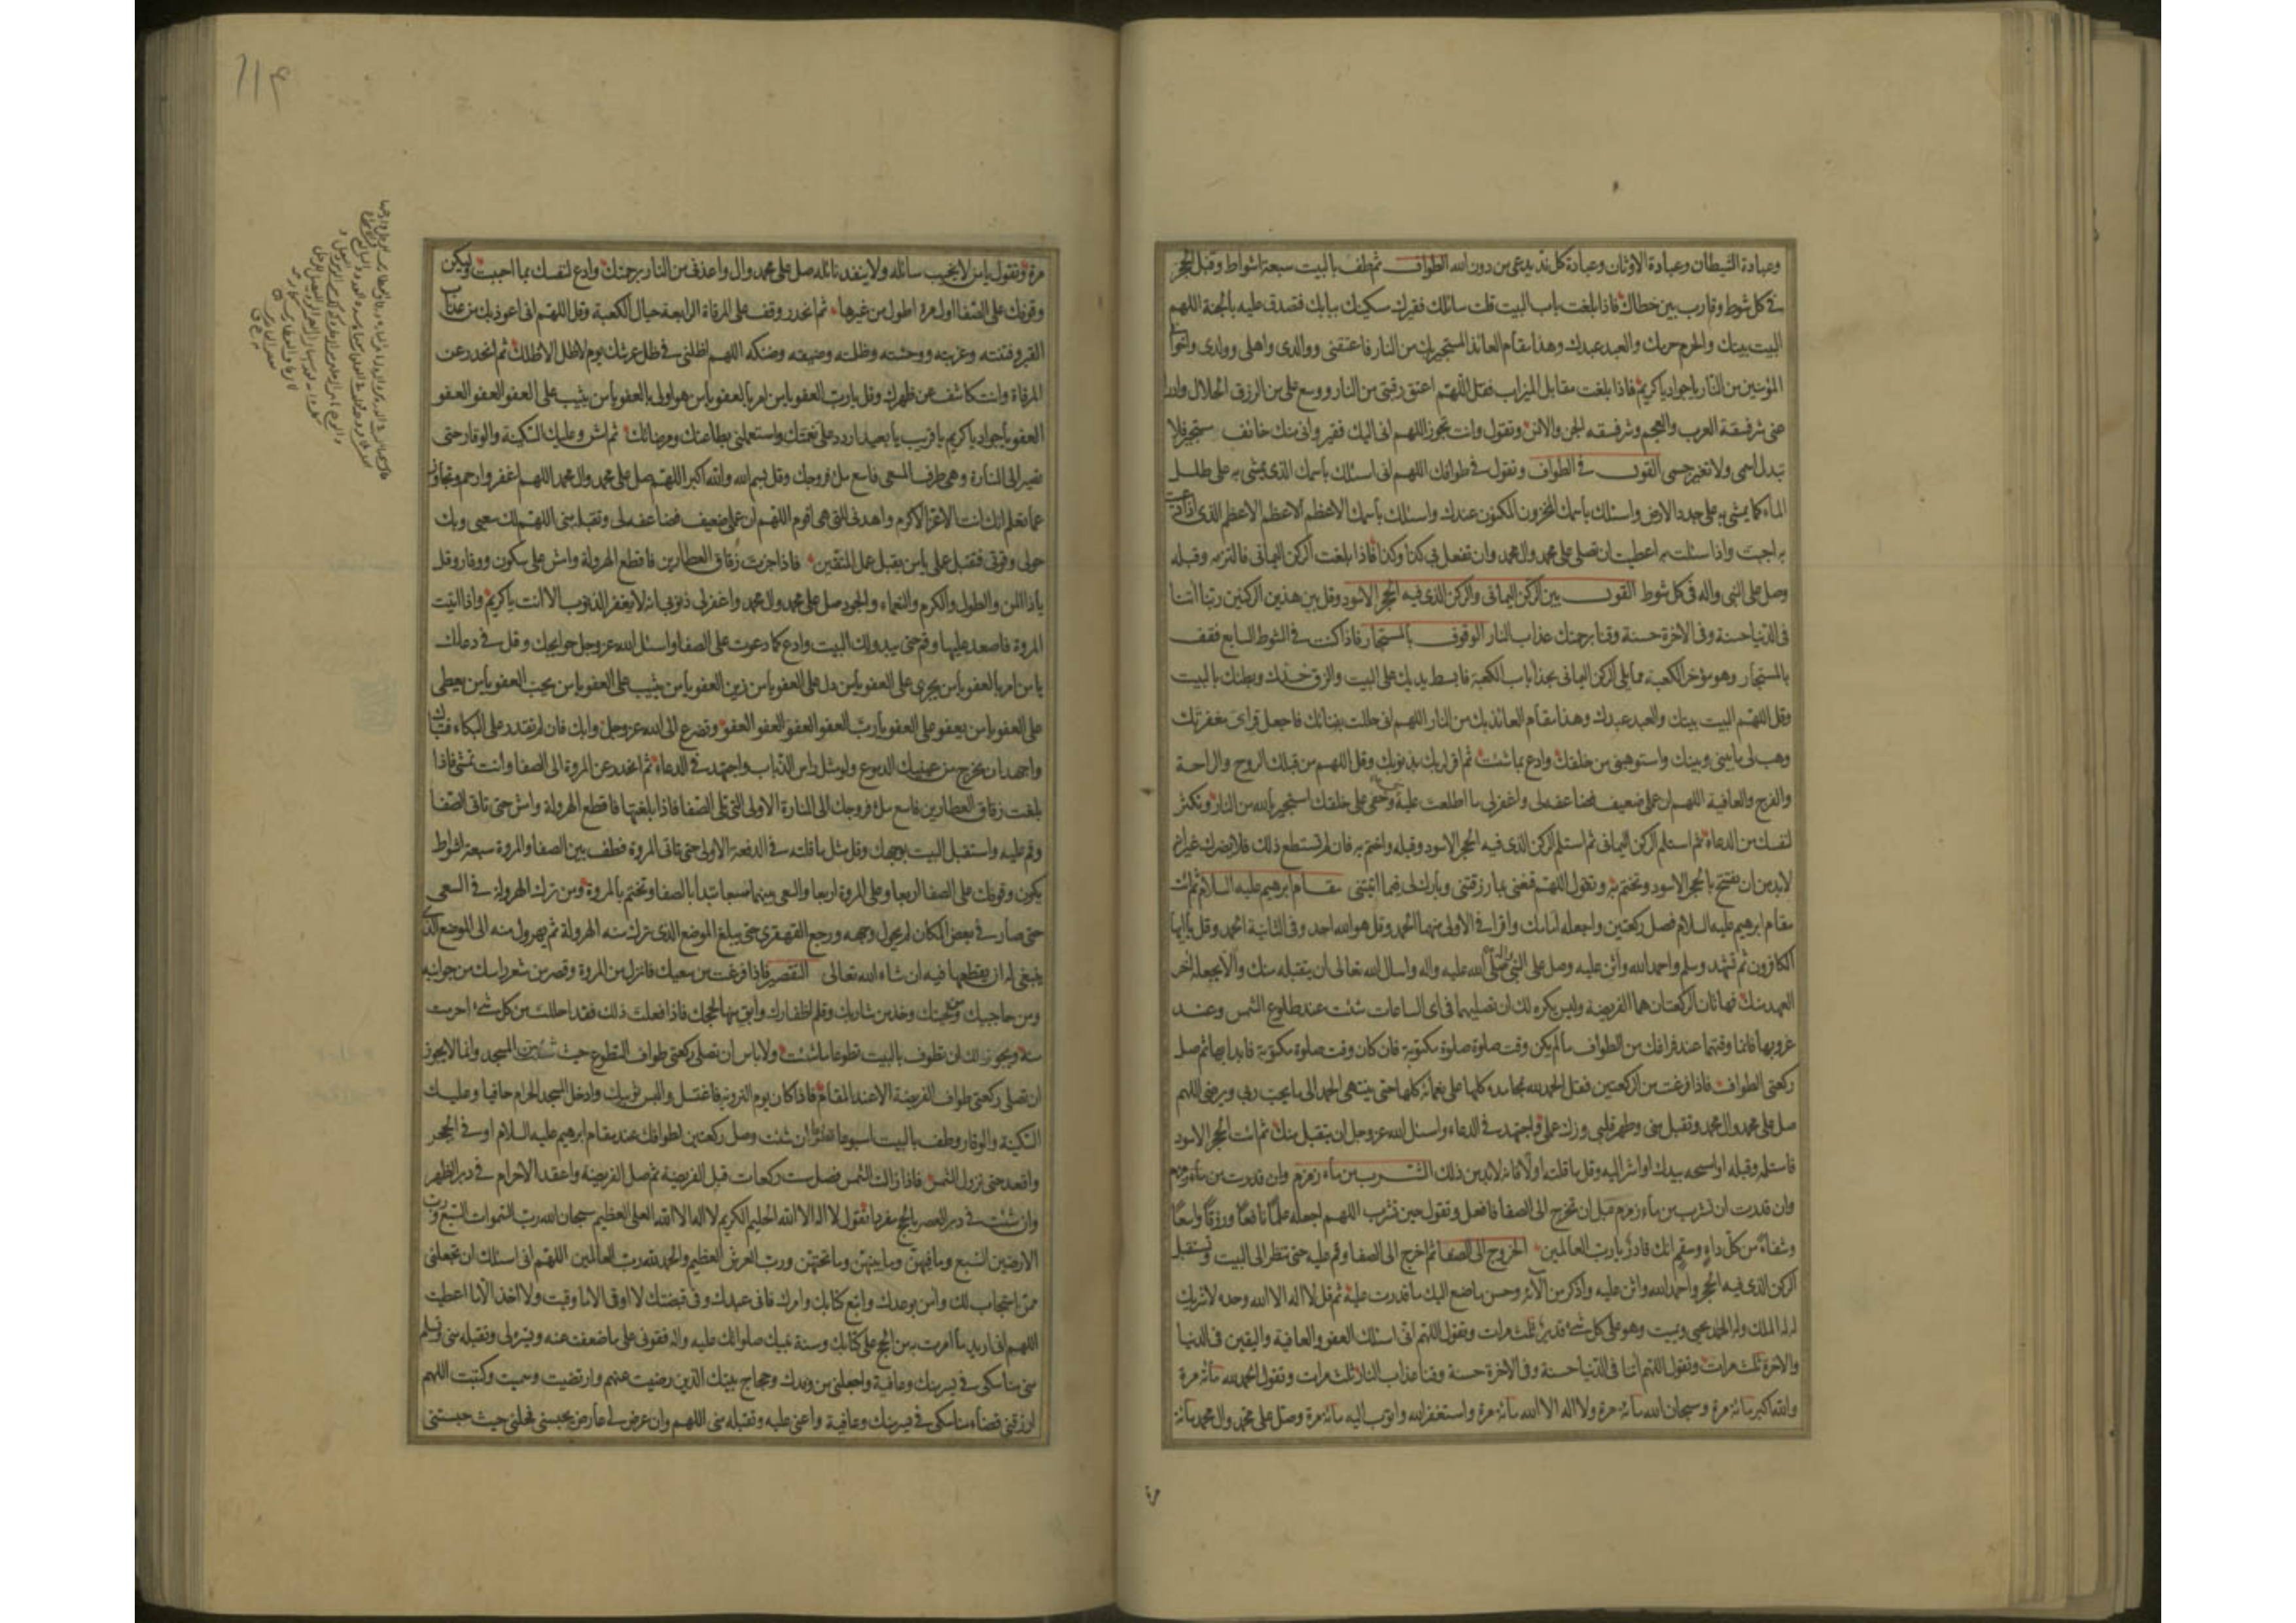 وعبادة الشيطان وعبادة الاوثان وعبادة كل ند يدعى من دون الله الطواف ثم طف بالبيت سبعة اشواط وقبل الحجر
في كل شوط وقارب بين خطاك فاذا بلغت باب البيت قلت سائلك فقيرك مسكينك ببابك فتصدق عليه بالجنة اللهم
البيت بيتك والحرم حرمك والعبد عبدك وهذا مقام العائذ المستجير بك من النار فاعتقني ووالدي واهلي وولدي واخواني
المؤمنين من النار يا جواد يا كريم فاذا بلغت مقابل الميزاب فقل اللهم اعتق رقبتي من النار ووسع علي من الرزق الحلال وادرا
عني شر فسقة العرب والعجم وشر فسقة الجن والانس وتقول وانت تجوز اللهم اني اليك فقير واني منك خائف مستجير فلا
تبدل اسمي ولا تغير جسمي القول في الطواف وتقول في طوافك اللهم اني اسئلك باسمك الذي يمشى به على طلل
الماء كما يمشى به على جدد الارض واسئلك باسمك المخزون المكنون عندك واسئلك باسمك الاعظم الاعظم الاعظم الذي اذا دعيت
به اجبت واذا سئلت به اعطيت ان تصلي على محمد وال محمد وان تفعل بي كذا وكذا فاذا بلغت الركن اليماني فالتزمه وقبله
وصل على النبي واله في كل شوط القول بين الركن اليماني والركن الذي فيه الحجر الاسود وقل بين هذين الركنين ربنا اتنا
في الدنيا حسنة وفي الاخرة حسنة وقنا برحمتك عذاب النار الوقوف بالمستجار فاذا كنت في الشوط السابع فقف
بالمستجار وهو مؤخر الكعبة مما يلي الركن اليماني بحذا باب الكعبة فابسط يديك على البيت والزق خدك وبطنك بالبيت
وقل اللهم البيت بيتك والعبد عبدك وهذا مقام العائذ بك من النار اللهم اني حللت بفنائك فاجعل قراي مغفرتك
وهب لي ما بيني وبينك واستوهبني من خلقك وادع بما شئت ثم اقر لربك بذنوبك وقل اللهم من قبلك الروح والراحة
والفرج والعافية اللهم ان عملي ضعيف فضاعفه لي واغفر لي ما اطلعت عليه وخفي على خلقك استجير بالله من النار وتكثر
لنفسك من الدعاء ثم استلم الركن اليماني ثم استلم الركن الذي فيه الحجر الاسود وقبله واختم به فان لم تستطع ذلك فلا يضرك غير انه
لابد من ان تفتتح بالحجر الاسود وتختم به وتقول اللهم قنعني بما رزقتني وبارك لي فيما اتيتني مقام ابرهيم عليه السلام ثم ائت
مقام ابرهيم عليه السلام فصل ركعتين واجعله امامك واقرا في الاولى منهما الحمد وقل هو الله احد وفي الثانية الحمد وقل يا ايها
الكافرون ثم تشهد وسلم واحمد الله واثن عليه وصل على النبي صلى الله عليه واله واسال الله تعالى ان يتقبله منك والا يجعله اخر
العهد منك فهاتان الركعتان هما الفريضة وليس يكره لك ان تصليهما في اي الساعات شئت عند طلوع الشمس وعند
غروبها فانما وقتهما عند فراغك من الطواف ما لم يكن وقت صلوة مكتوبة فان كان وقت صلوة مكتوبة فابدا بها ثم صل
ركعتي الطواف فاذا فرغت من الركعتين فقل الحمد لله بمحامده كلها على نعمائه كلها حتى ينتهي الحمد الى ما يحب ربي ويرضى اللهم
صل على محمد وال محمد وتقبل مني وطهر قلبي وزك عملي واجتهد في الدعاء واسئل الله عز وجل ان يتقبل منك ثم ائت الحجر الاسود
فاستلمه وقبله او امسحه بيدك او اشر اليه وقل ما قلته اولا فانه لابد من ذلك الشرب من ماء زمزم وان قدرت من ماء زمزم
وان قدرت ان تشرب من ماء زمزم قبل ان تخرج الى الصفا فافعل وتقول حين تشرب اللهم اجعله علما نافعا ورزقا واسعا
وشفاء من كل داء وسقم انك قادر يا رب العالمين الخروج الى الصفا ثم اخرج الى الصفا وقم عليه حتى تنظر الى البيت وتستقبل
الركن الذي فيه الحجر واحمد الله واثن عليه واذكر من الائه وحسن ما صنع اليك ما قدرت عليه ثم قل لا اله الا الله وحده لا شريك
له له الملك وله الحمد يحيي ويميت وهو على كل شيء قدير ثلث مرات وتقول اللهم اني اسئلك العفو والعافية واليقين في الدنيا
والاخرة ثلث مرات وتقول اللهم اتنا في الدنيا حسنة وفي الاخرة حسنة وقنا عذاب النار ثلث مرات وتقول الحمد لله مائة مرة
والله اكبر مائة مرة وسبحان الله مائة مرة ولا اله الا الله مائة مرة واستغفر الله واتوب اليه مائة مرة وصل على محمد وال محمد مائة
مرة
مرة وتقول يا من لا يخيب سائله ولا ينفد نائله صل على محمد وال واعذني من النار برحمتك وادع لنفسك بما احببت وليكن
وقوفك على الصفا اول مرة اطول من غيرها ثم انحدر وقف على المرقاة الرابعة حيال الكعبة وقل اللهم اني اعوذ بك من عذاب
القبر وفتنته وغربته ووحشته وظلمته وضيقه وضنكه اللهم اظلني في ظل عرشك يوم لا ظل الا ظلك ثم انحدر عن
المرقاة وانت كاشف عن ظهرك وقل يا رب العفو يا من امر بالعفو يا من هو اولى بالعفو يا من يثيب على العفو العفو العفو
العفو يا جواد يا كريم يا قريب يا بعيد اردد علي نعمتك واستعملني بطاعتك ومرضاتك ثم امش وعليك السكينة والوقار حتى
تصير الى المنارة وهي طرف المسعى فاسع ملأ فروجك وقل بسم الله والله اكبر اللهم صل على محمد وال محمد اللهم اغفر وارحم وتجاوز
عما تعلم انك انت الاعز الاكرم واهدني للتي هي اقوم اللهم ان عملي ضعيف فضاعفه لي وتقبله مني اللهم لك سعيي وبك
حولي وقوتي فتقبل عملي يا من يقبل عمل المتقين فاذا جزت زقاق العطارين فاقطع الهرولة وامش على سكون ووقار وقل
يا ذا المن والطول والكرم والنعماء والجود صل على محمد وال محمد واغفر لي ذنوبي انه لا يغفر الذنوب الا انت يا كريم واذا اتيت
المروة فاصعد عليها وقم حتى يبدو لك البيت وادع كما دعوت على الصفا واسئل الله عز وجل حوائجك وقل في دعائك
يا من امر بالعفو يا من يجزي على العفو يا من دل على العفو يا من زين العفو يا من يثيب على العفو يا من يحب العفو يا من يعطي
على العفو يا من يعفو على العفو يا رب العفو العفو العفو العفو وتضرع الى الله عز وجل وابك فان لم تقدر على البكاء فتباك
واجهد ان يخرج من عينيك الدموع ولو مثل راس الذباب واجتهد في الدعاء ثم انحدر عن المروة الى الصفا وانت تمشي فاذا
بلغت زقاق العطارين فاسع ملأ فروجك الى المنارة الاولى التي تلي الصفا فاذا بلغتها فاقطع الهرولة وامش حتى تاتي الصفا
وقم عليه واستقبل البيت بوجهك وقل مثل ما قلته في الدفعة الاولى حتى تاتي المروة فطف بين الصفا والمروة سبعة اشواط
يكون وقوفك على الصفا اربعا وعلى المروة اربعا والسعي بينهما سبعا تبدا بالصفا وتختم بالمروة ومن ترك الهرولة في السعي
حتى صار في بعض المكان لم يحول وجهه ورجع القهقرى حتى يبلغ الموضع الذي ترك منه الهرولة ثم يهرول منه الى الموضع الذي
ينبغي له ان يقطعها فيه ان شاء الله تعالى التقصير فاذا فرغت من سعيك فانزل من المروة وقصر من شعر راسك من جوانبه
ومن حاجبيك ومن لحيتك وخذ من شاربك وقلم اظفارك وابق منها لحجك فاذا فعلت ذلك فقد احللت من كل شيء احرمت
منه ويجوز لك ان تطوف بالبيت تطوعا ما شئت ولا باس ان تصلي ركعتي طواف التطوع حيث شئت من المسجد وانما لا يجوز
ان تصلي ركعتي طواف الفريضة الا عند المقام فاذا كان يوم التروية فاغتسل والبس ثوبيك وادخل المسجد الحرام حافيا وعليك
السكينة والوقار وطف بالبيت اسبوعا تطوعا ان شئت وصل ركعتين لطوافك عند مقام ابرهيم عليه السلام او في الحجر
واقعد حتى تزول الشمس فاذا زالت الشمس فصل ست ركعات قبل الفريضة ثم صل الفريضة واعقد الاحرام في دبر الظهر
وان شئت في دبر العصر بالحج مفردا تقول لا اله الا الله الحليم الكريم لا اله الا الله العلي العظيم سبحان الله رب السموات السبع ورب
الارضين السبع وما فيهن وما بينهن وما تحتهن ورب العرش العظيم والحمد لله رب العالمين اللهم اني اسئلك ان تجعلني
ممن استجاب لك وامن بوعدك واتبع كتابك وامرك فاني عبدك وفي قبضتك لا اوقى الا ما وقيت ولا اخذ الا ما اعطيت
اللهم اني اريد ما امرت به من الحج على كتابك وسنة نبيك صلواتك عليه واله فقوني على ما ضعفت عنه ويسره لي وتقبله مني وتسلم
مني مناسكي في يسر منك وعافية واجعلني من وفدك وحجاج بيتك الذين رضيت عنهم وارتضيت وسميت وكتبت اللهم
ارزقني قضاء مناسكي في يسر منك وعافية واعني عليه وتقبله مني اللهم وان عرض لي عارض يحبسني فحلني حيث حبستني